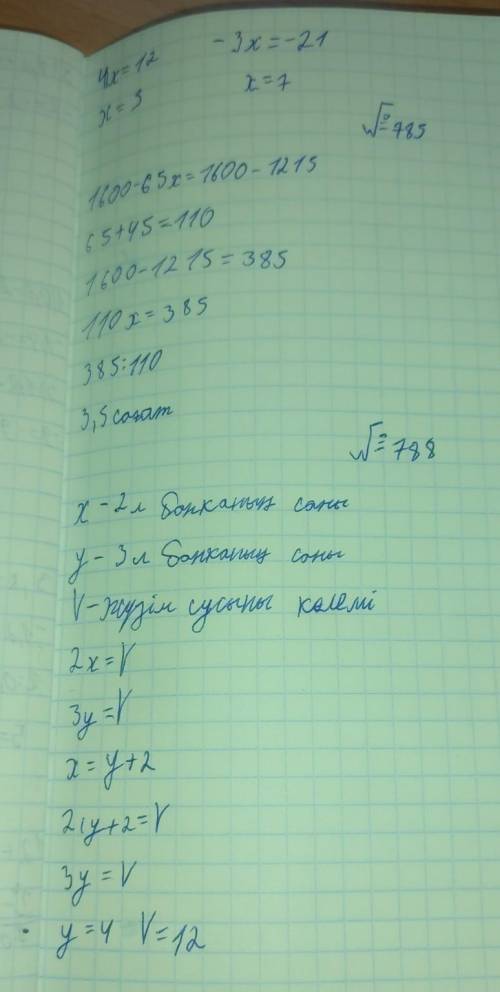 4x=12
-3x=-21
x=3
x=7
№785
1600-65x=1600-1215
65+45=110
1600-1215=385
110x=385
385:110
3,5 сағат
№788
x-2л банканың саны
y-3л банканың саны
V-жүзім сусыны көлемі
2x=V
3y=V
x=y+2
2(y+2=V
3y=V
y=4 V=12